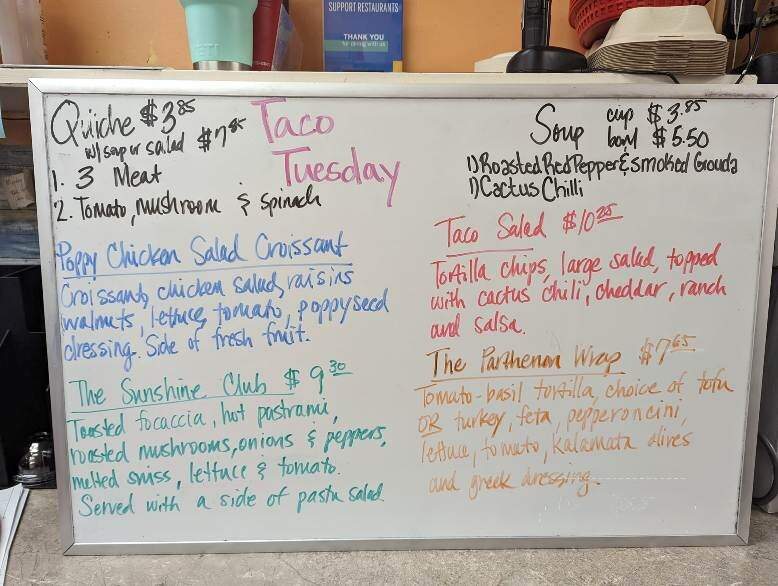 SUPPORT RESTAURANTS
THANK YOU
for dining with us
YETI
Quiche $3.85
w/ soup or salad $7.85
1. 3 Meat
2. Tomato, mushroom & spinach
Taco
Tuesday
Soup cup $3.85
bowl $5.50
1) Roasted Red Pepper & smoked Gouda
1) Cactus Chilli
Poppy Chicken Salad Croissant
Croissant, chicken salad, raisins
walnuts, lettuce, tomato, poppyseed
dressing. Side of fresh fruit.
The Sunshine Club $9.30
Toasted focaccia, hot pastrami,
roasted mushrooms, onions & peppers,
melted swiss, lettuce & tomato.
Served with a side of pasta salad
Taco Salad $10.25
Tortilla chips, large salad, topped
with cactus chili, cheddar, ranch
and salsa.
The Parthenon Wrap $7.65
Tomato-basil tortilla, choice of tofu
OR turkey, feta, pepperoncini,
lettuce, tomato, kalamata olives
and greek dressing.